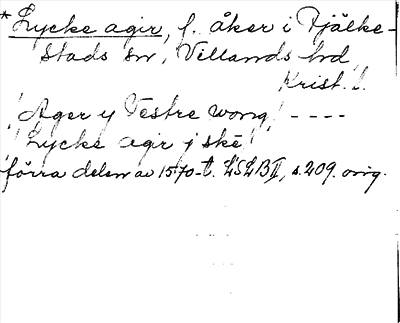 *Lycke agir, f. åker i Fjälke-
stads sn, Villands hd,
Krist. l.
"Ager y Vestre wong" ----
"Lycke agir j ske"
förra delen av 1570-t. LSLB II, s. 209. orig.